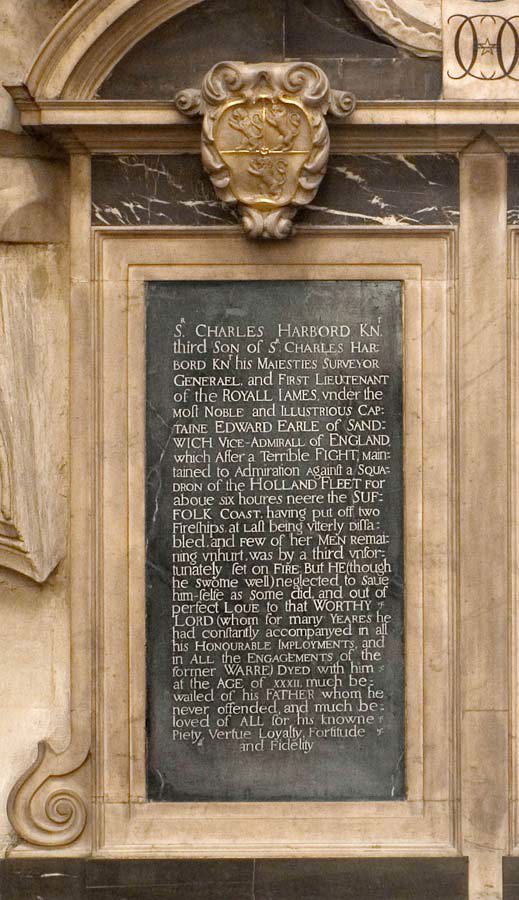 Sʳ. CHARLES HARBORD Knᵗ.
third SON of Sʳ. CHARLES HAR:
BORD Knᵗ his MAIESTIES SURVEYOR
GENERAEL, and FIRST LIEUTENANT
of the ROYALL IAMES, vnder the
most NOBLE and ILLUSTRIOUS CAP:
TAINE EDWARD EARLE of SAND:
WICH VICE-ADMIRALL of ENGLAND,
which After a Terrible FIGHT, main:
tained to Admiration against a SQUA:
DRON of the HOLLAND FLEET for
aboue six houres neere the SUF:
FOLK COAST, having put off two
Fireships, at Last being vtterly disa:
bled, and few of her MEN remai:
ning vnhurt, was by a third vnfor:
tunately set on FIRE: But HE (though
he swome well) neglected to saue
him-selfe as some did, and out of
perfect LOUE to that WORTHY
LORD (whom for many YEARES he
had constantly accompanyed in all
his HONOURABLE IMPLOYMENTS, and
in ALL the ENGAGEMENTS of the
former WARRE) DYED with him
at the AGE of XXXII. much be:
wailed of his FATHER whom he
never offended, and much be:
loved of ALL for his knowne
Piety, Vertue Loyalty, Fortitude
and Fidelity